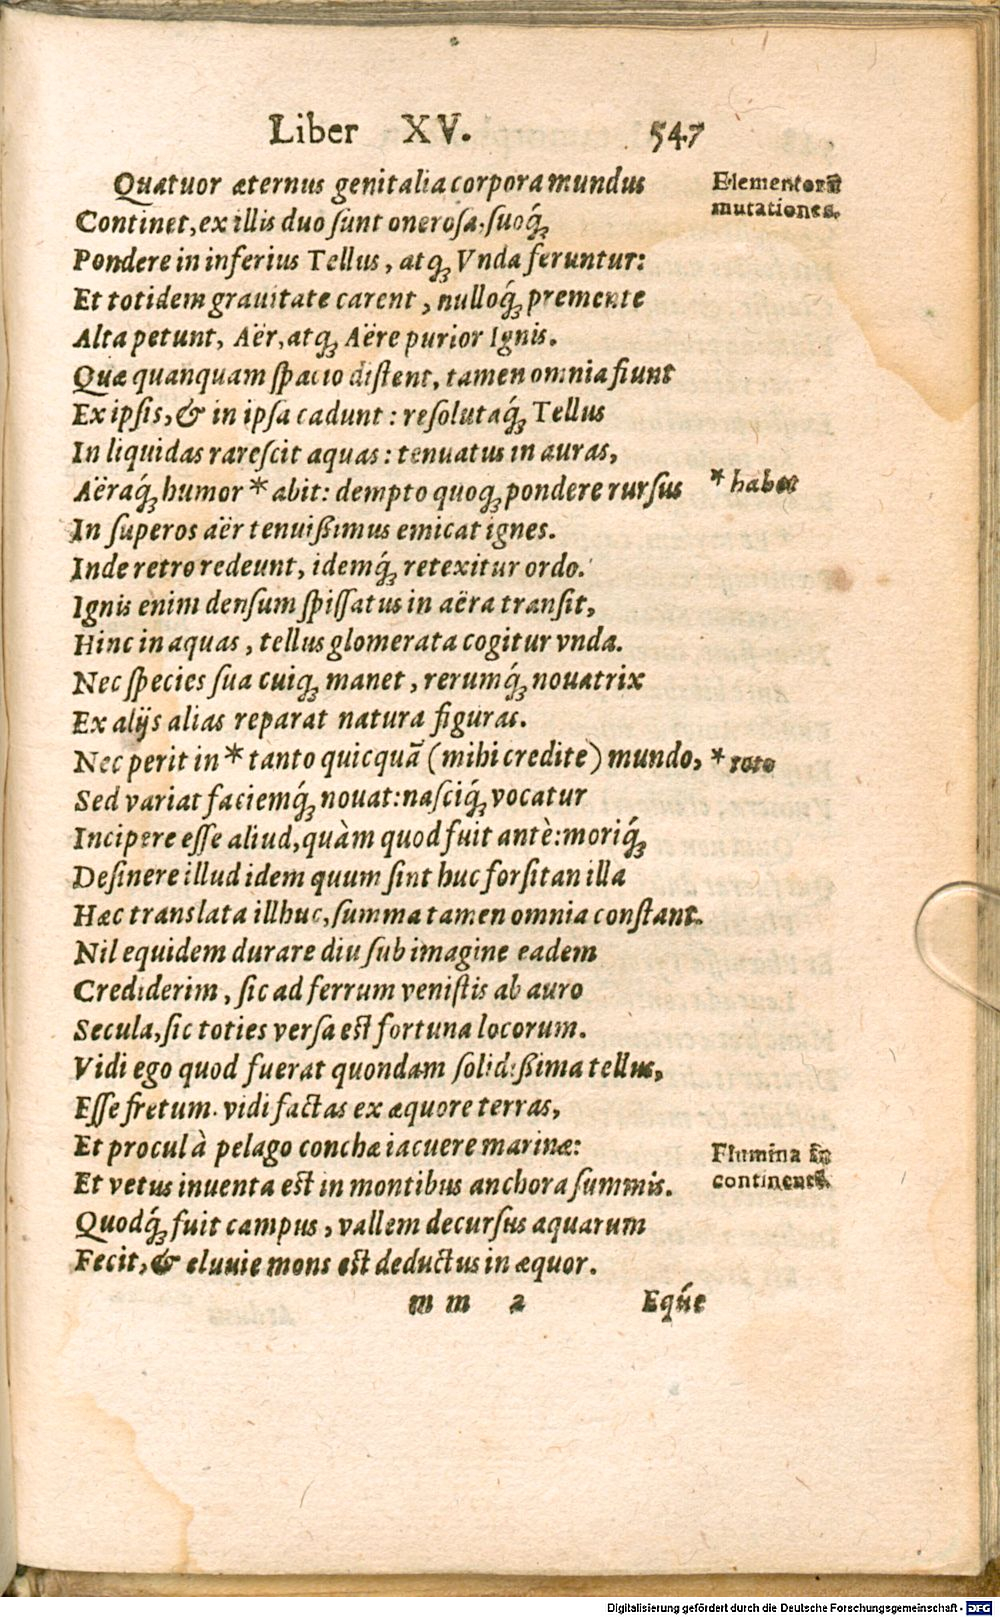 Liber XV. 547
Quatuor æternus genitalia corpora mundus
Elementorũ
mutationes.
Continet, ex illis duo ſunt oneroſa, ſuoq́ꝫ
Pondere in inferius Tellus, atqꝫ Vnda feruntur:
Et totidem grauitate carent, nulloq́ꝫ premente
Alta petunt, Aër, atqꝫ Aëre purior Ignis.
Quæ quanquam ſpacio diſtent, tamen omnia fiunt
Ex ipſis, & in ipſa cadunt: reſolutaq́ꝫ Tellus
In liquidas rareſcit aquas: tenuatus in auras,
Aëraq́ꝫ humor * abit: dempto quoqꝫ pondere rurſus
* habet
In ſuperos aër tenuißimus emicat ignes.
Inde retro redeunt, idemq́ꝫ retexitur ordo.
Ignis enim denſum ſpiſſatus in aëra tranſit,
Hinc in aquas, tellus glomerata cogitur vnda.
Nec ſpecies ſua cuiqꝫ manet, rerumq́ꝫ nouatrix
Ex alijs alias reparat natura figuras.
Nec perit in * tanto quicquã (mihi credite) mundo,
* toto
Sed variat faciemq́ꝫ nouat: naſciq́ꝫ vocatur
Incipere eſſe aliud, quàm quod fuit antè: moriq́ꝫ
Deſinere illud idem quum ſint huc forſitan illa
Hæc translata illhuc, ſumma tamen omnia conſtant.
Nil equidem durare diu ſub imagine eadem
Crediderim, ſic ad ferrum veniſtis ab auro
Secula, ſic toties verſa eſt fortuna locorum.
Vidi ego quod fuerat quondam ſolidißima tellus,
Eſſe fretum. vidi factas ex æquore terras,
Et procul à pelago conchæ iacuere marinæ:
Flumina in
continentẽ.
Et vetus inuenta eſt in montibus anchora ſummis.
Quodq́ꝫ fuit campus, vallem decurſus aquarum
Fecit, & eluuie mons eſt deductus in æquor.
m m 2 Eq́ue
Digitalisierung gefördert durch die Deutsche Forschungsgemeinschaft - DFG